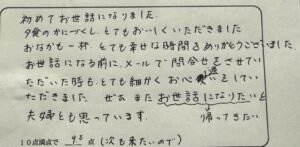 初めてお世話になりました
夕食のかにづくし、とてもおいしくいただきました
おなかも一杯、とても幸せな時間をありがとうございました。
お世話になる前に、メールで問合せをさせてい
ただいた時も、とても細かくお心遣いをしてい
ただきました ぜひまたお世話になりたいと
夫婦とも思っています。 帰ってきたい
10点満点で 9.8 点 (次も来たいので)